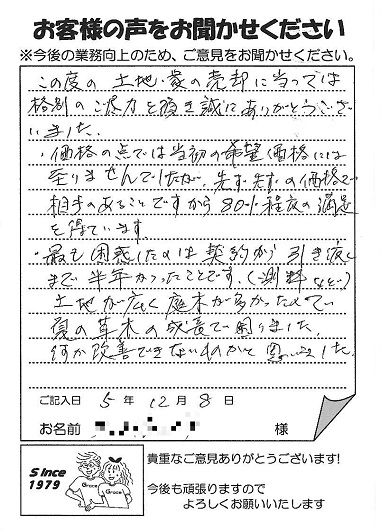 お客様の声をお聞かせください
※今後の業務向上のため、ご意見をお聞かせください。
この度の土地・家の売却に当っては
格別のご尽力を頂き誠にありがとうござ
いました。
・価格の点では当初の希望価格には
至りませんでしたが、先ず先ずの価格で
相手のあることですから80%程度の満足
を得ています
・最も困惑したのは契約から引き渡し
まで半年かかったことです。(測料など)
土地が広く庭木が多かったので
夏の草木の成長で困りました。
何か改善できないものかと思いました。
ご記入日 5年12月8日
お名前 様
Since
1979
Grace
Grace
貴重なご意見ありがとうございます!
今後も頑張りますので
よろしくお願いいたします